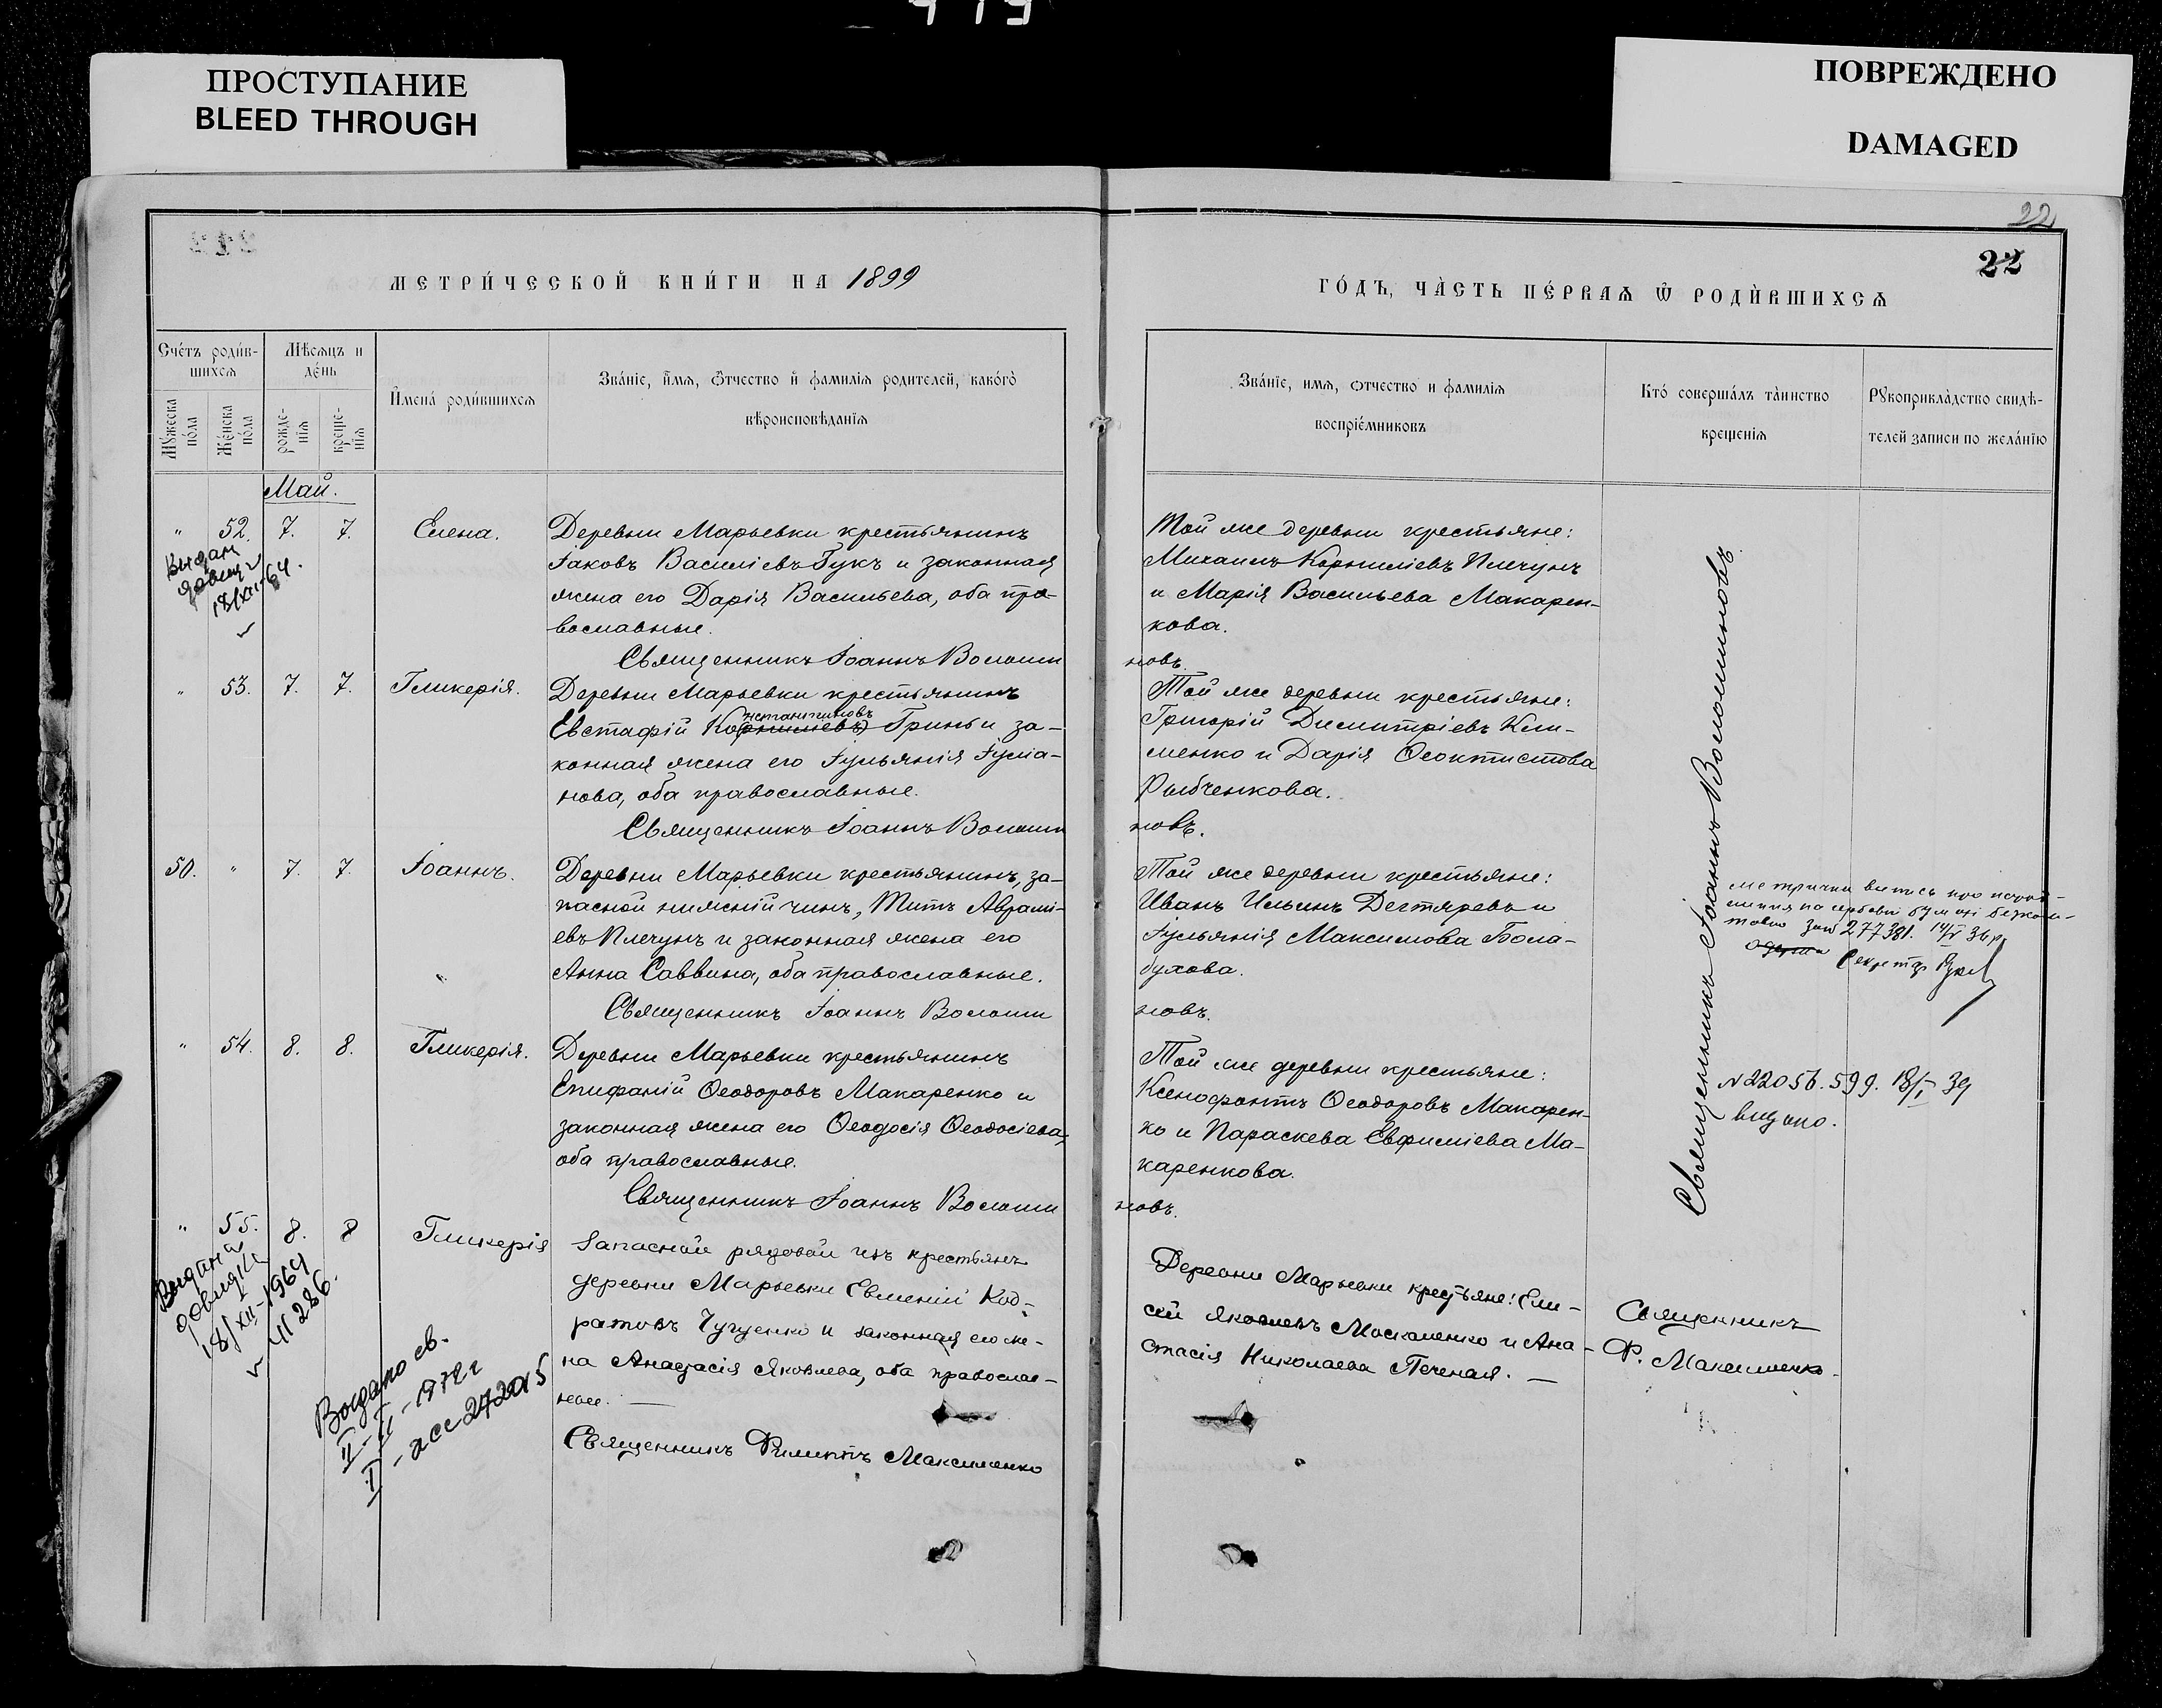 ПРОСТУПАНИЕ
BLEED THROUGH
ПОВРЕЖДЕНО
DAMAGED
22
22
МЕТРИ́ЧЕСКОЙ КНИ́ГИ НА 1899
ГО́ДЪ, ЧА̀СТЬ ПЕ́РВАѦ Ѿ РОДЍВШИХСѦ
Сче́тъ роди́в-
шихсѧ
Мѣ́сѧцъ и
де́нь
Мꙋ́жеска
по́ла
Же́нска
по́ла
рожде-
нїѧ
креще-
нїѧ
И҆мена́ роди́вшихсѧ
Зва́нїе, и҆́мѧ, ѻ҆́тчество и҆ фамилїѧ родителей, како́гѡ
вѣроисповѣ́данїѧ
Зва́нїе, имѧ, ѻтчество и фамилїѧ
воспрїе́мниковъ
Кто́ соверша́лъ та̀инство
креще́нїѧ
Рꙋкоприкла́дство свидѣ́-
телей записи по жела́нїю
Май.
" 52. 7. 7. Елена.
Деревни Марьевки крестьянинъ
Іаковъ Василіевъ Гукъ и законная
жена его Дарія Васильева, оба пра-
вославные.
Священникъ Іоаннъ Волоши
Той же деревни крестьяне:
Михаилъ Корниліевъ Плечунъ
и Марія Васильева Макарен-
кова.
новъ.
18/XII-64.
" 53. 7. 7. Гликерія.
Деревни Марьевки крестьянинъ
нстантиновъ
Евстафій Корниліевъ Гринь и за-
конная жена его Іульянія Іулiа-
нова, оба православные.
Священникъ Іоаннъ Волоши
Той же деревни крестьяне:
Григорій Димитріевъ Кли-
менко и Дарія Ѳеоктистова
Рыбченкова.
новъ.
50. " 7. 7. Іоаннъ.
Деревни Марьевки крестьянинъ, за-
пасной нижній чинъ, Титъ Аврамі-
евъ Плечунъ и законная жена его
Анна Саввина, оба православные.
Священникъ Іоаннъ Волоши
Той же деревни крестьяне:
Иванъ Ильинъ Дегтяревъ и
Іульянія Максимова Бала-
бухова.
новъ.
Священникъ Іоаннъ Волошиновъ.
277381.
" 54. 8. 8. Гликерія.
Деревни Марьевки крестьянинъ
Епифаній Ѳеодоровъ Макаренко и
законная жена его Ѳеодосія Ѳеодосіева,
оба православные.
Священникъ Іоаннъ Волоши
Той же деревни крестьяне:
Ксенофонтъ Ѳеодоровъ Макарен-
ко и Параскева Евфиміева Ма-
каренкова.
новъ.
N 22056. 599. 18/I 39
видано.
" 55. 8. 8 Гликерія
Запасной рядовой изъ крестьянъ
деревни Марьевки Евменій Код-
ратовъ Чугуенко и законная его же-
на Анастасія Яковлева, оба православ-
ные. —
Священникъ Филиппъ Максименко
Деревни Марьевки крестьяне: Ели-
сей Яковлевъ Москаленко и Ана-
стасія Николаева Печеная. —
Священникъ
Ф. Максименко.
Выдана
довидка
18/XII-1964
41286.
Выдано св.